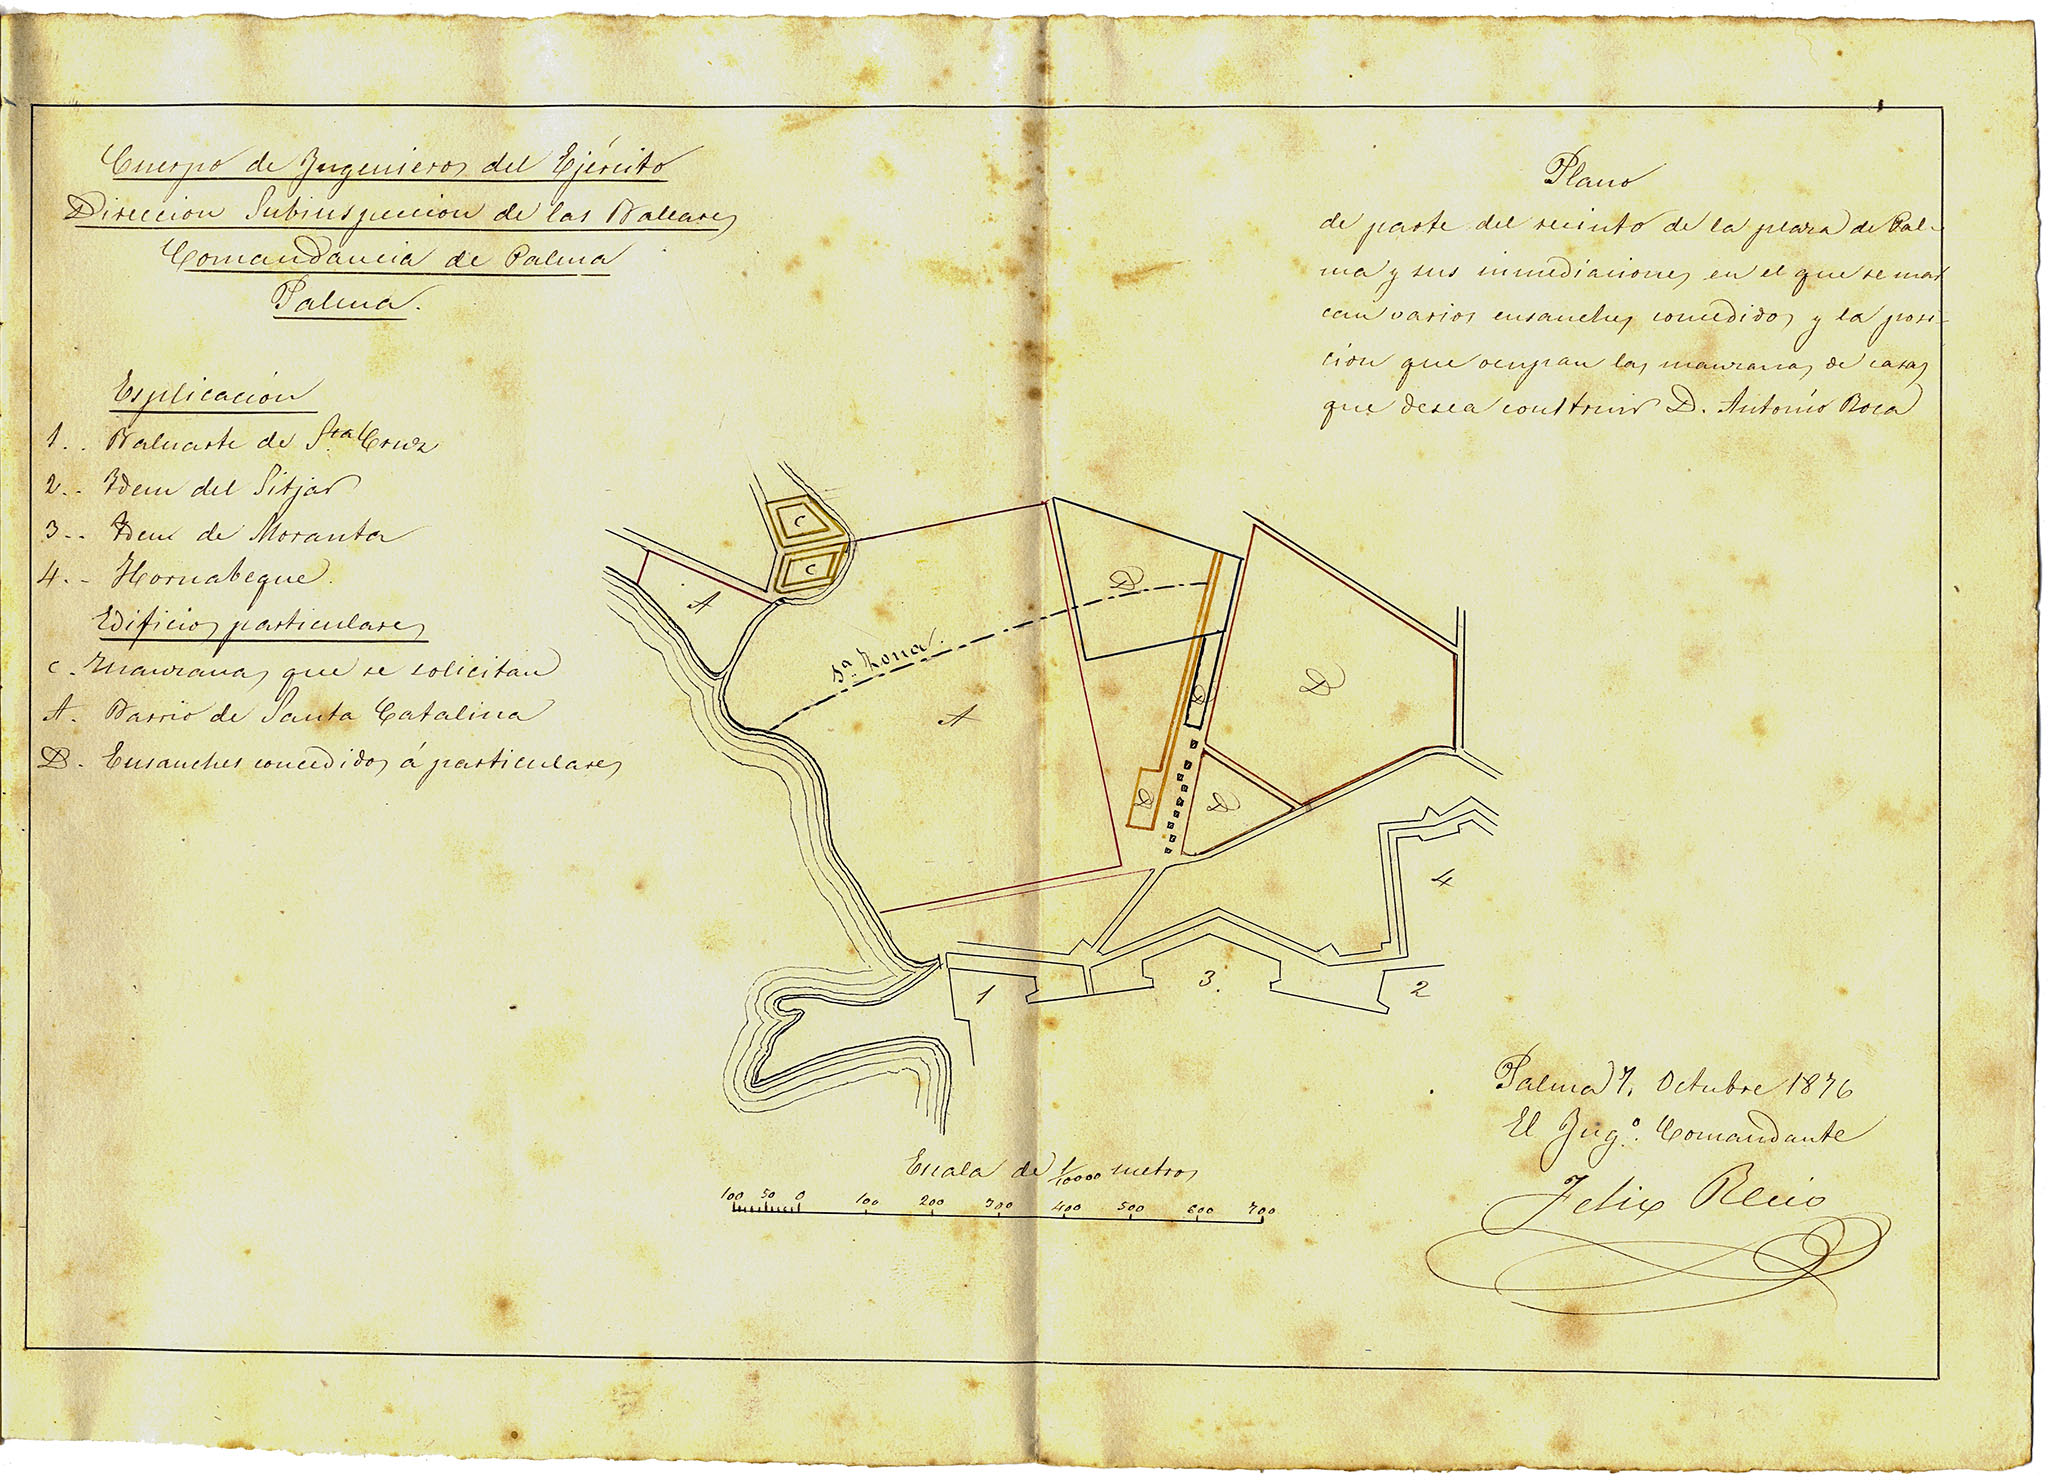 Cuerpo de Ingenieros del Ejército
Direccion Subinspeccion de las Baleares
Comandancia de Palma
Palma.
Esplicación
1.. Baluarte de Sta. Cruz
2.. Idem del Sitjar
3.. Idem de Moranta
4.. Hornabeque.
Edificios particulares
C. Manzanas que se solicitan
A. Barrio de Santa Catalina
D. Ensanches concedidos á particulares
Plano
de parte del recinto de la plaza de Pal-
ma y sus inmediaciones en el que se mar
can varios ensanches concedidos y la posi-
cion que ocupan las manzanas de casas
que desea construir D. Antonio Roca
C
C
A
D
3ª Zona.
A
D
D
D
D
4
1
3.
2
Escala de 1/10000 metros
100 50 0 100 200 300 400 500 600 700
Palma 7, Octubre 1876
El Ingº. Comandante
Felix Recio